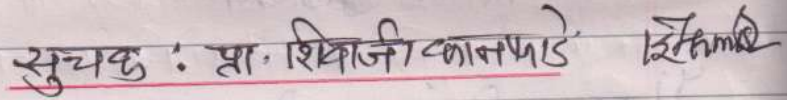 सुचक : प्रा. शिवाजी कानफाडे